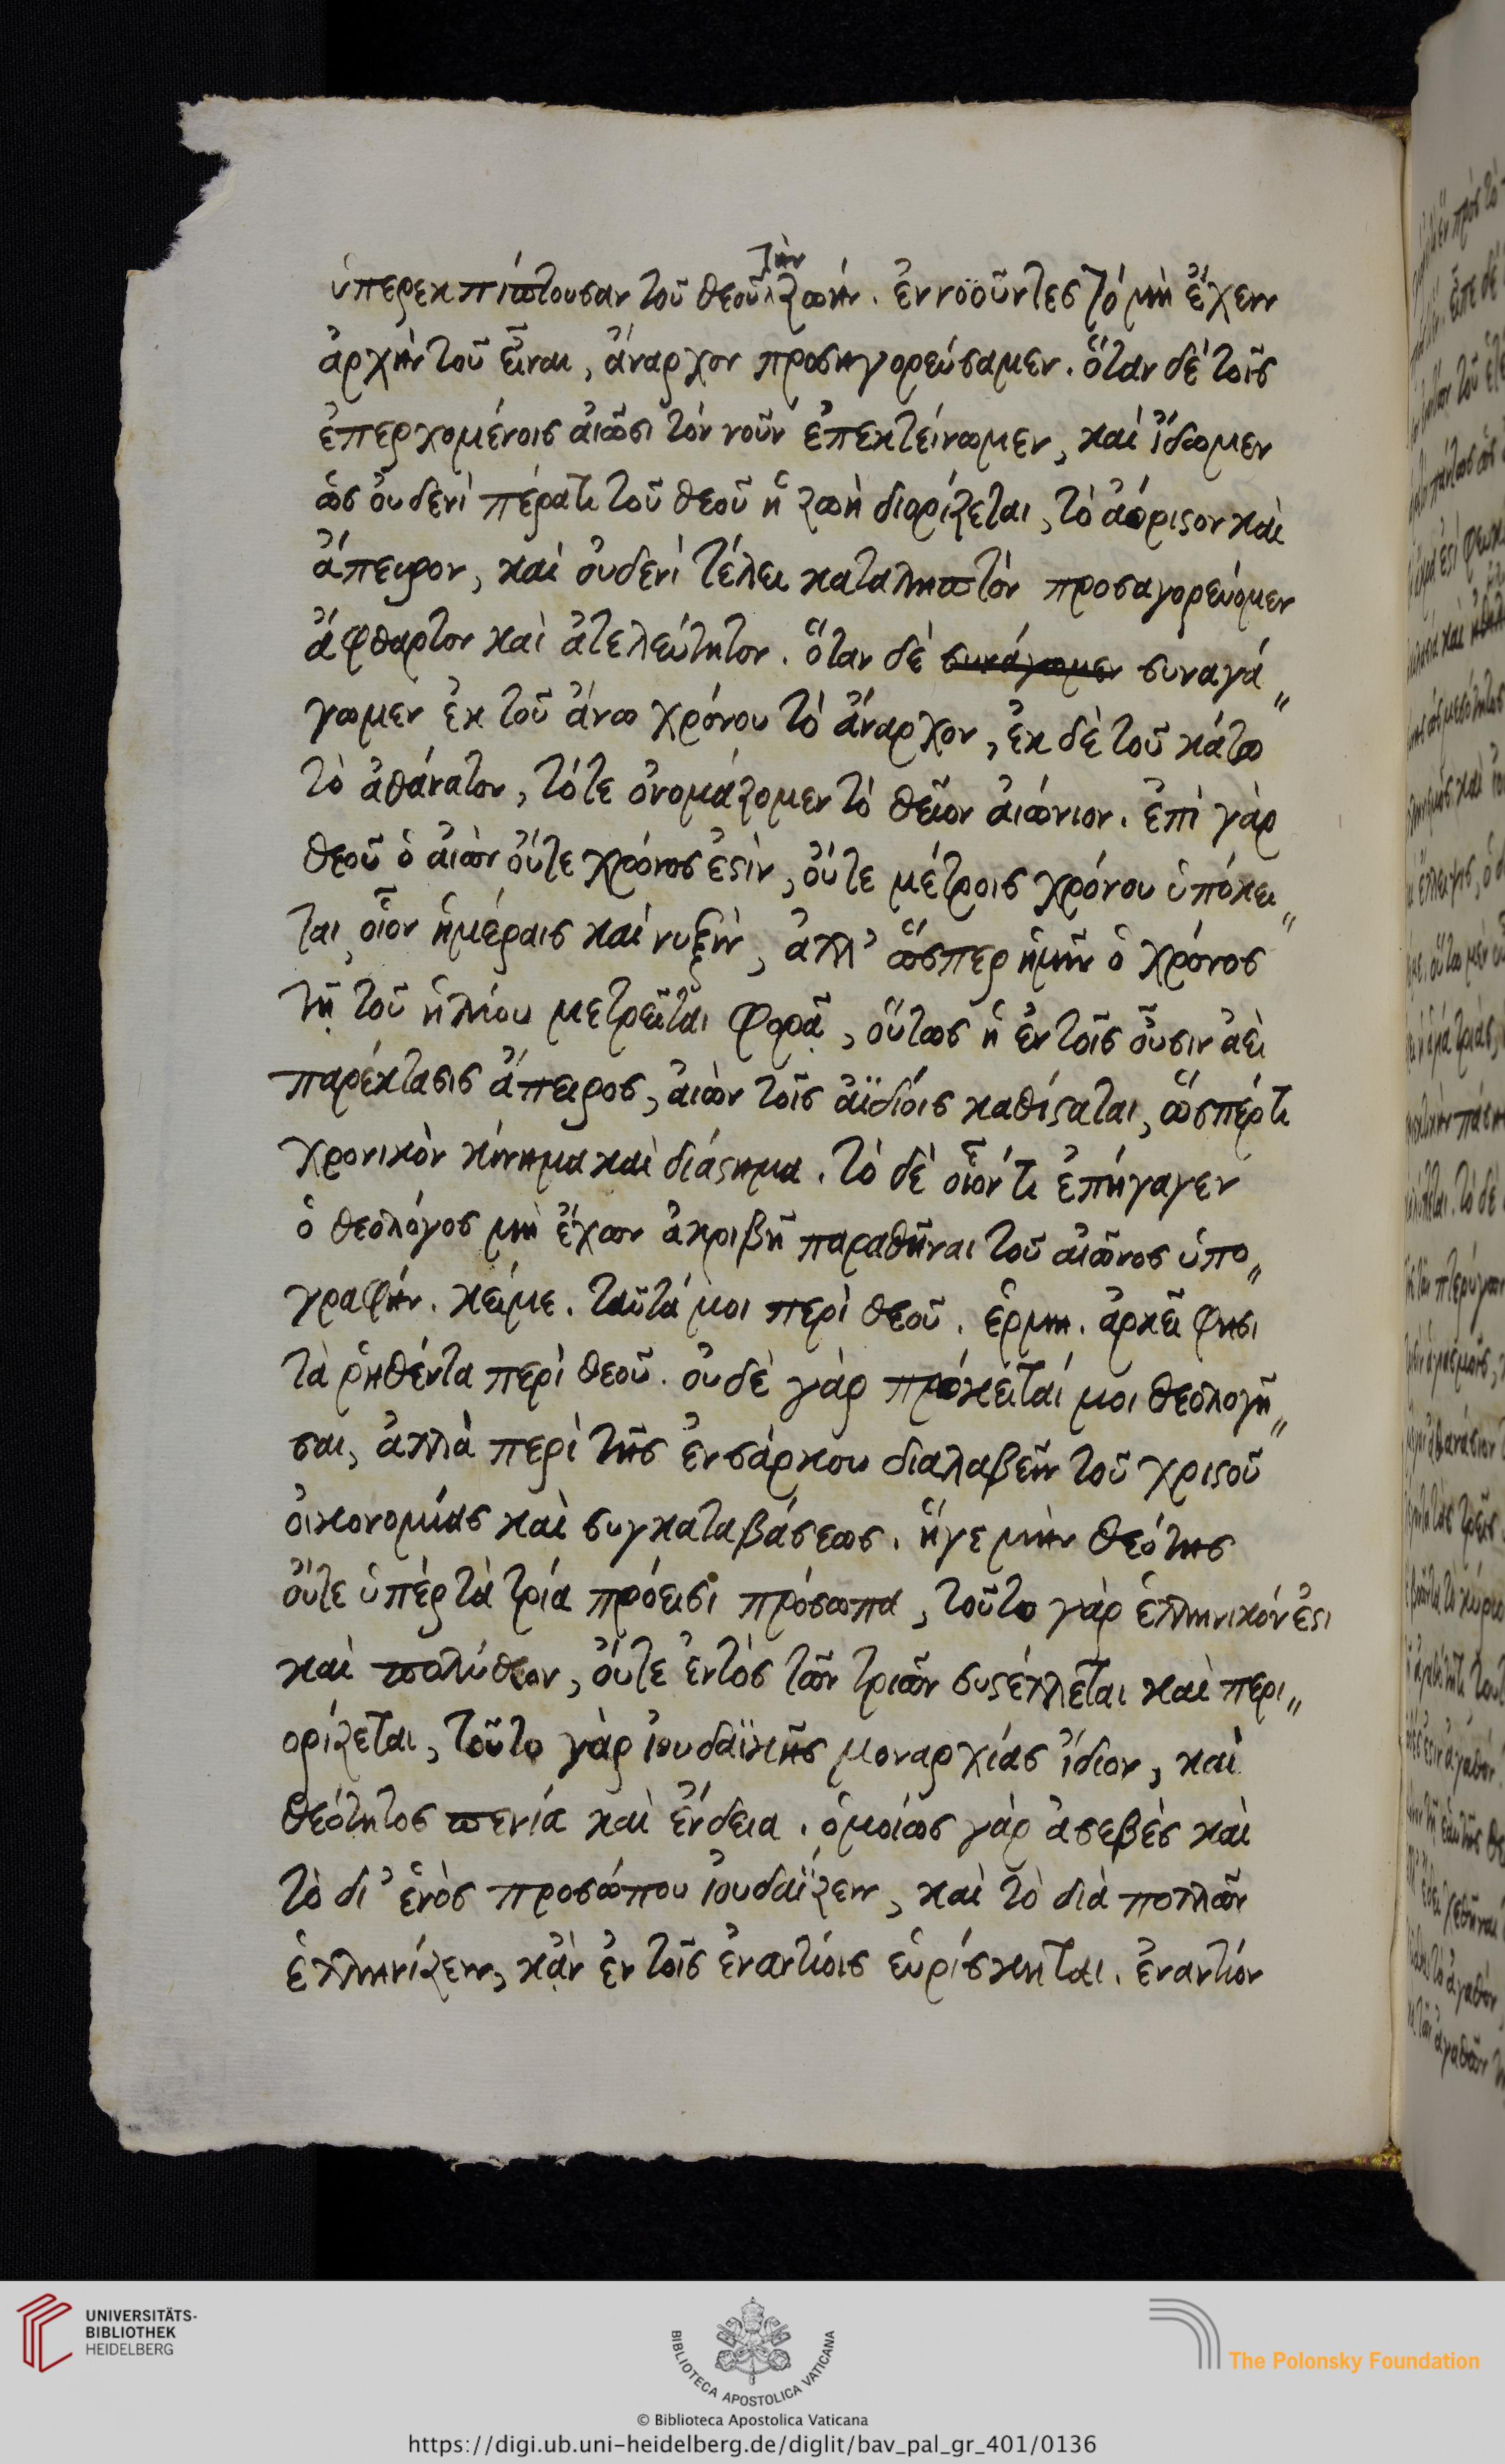 τὴν
ὑπερεκπίπτουσαν τοῦ θεοῦ ζωήν. ἐννοοῦντες τὸ μὴ ἔχειν
ἀρχὴν τοῦ εἶναι, ἄναρχον προσηγορεύσαμεν. ὅταν δὲ τοῖς
ἐπερχομένοις αἰῶσι τὸν νοῦν ἐπεκτείνωμεν, καὶ ἴδωμεν
ὡς οὐδενὶ πέρατι τοῦ θεοῦ ἡ ζωὴ διορίζεται, τὸ ἀόριστον καὶ
ἄπειρον, καὶ οὐδενὶ τέλει καταληπτὸν προσαγορεύομεν
ἄφθαρτον καὶ ἀτελεύτητον. ὅταν δὲ συνάγωμεν συναγά„
γωμεν ἐκ τοῦ ἄνω χρόνου τὸ ἄναρχον, ἐκ δὲ τοῦ κάτω
τὸ ἀθάνατον, τότε ὀνομάζομεν τὸ θεῖον αἰώνιον. ἐπὶ γὰρ
θεοῦ ὁ αἰὼν οὔτε χρόνος ἐστὶν, οὔτε μέτροις χρόνου ὑπόκει„
ται, οἷον ἡμέραις καὶ νυξὶν, ἀλλ' ὥσπερ ἡμῖν ὁ χρόνος
τῇ τοῦ ἡλίου μετρεῖται φορᾷ, οὕτως ἡ ἐν τοῖς οὖσιν ἀεὶ
παρέκτασις ἄπειρος, αἰὼν τοῖς ἀϊδίοις καθίσταται, ὥσπέρ τι
χρονικὸν κίνημα καὶ διάστημα. τὸ δὲ οἷόν τι ἐπήγαγεν
ὁ θεολόγος μὴ ἔχων ἀκριβῆ παραθῆναι τοῦ αἰῶνος ὑπο„
γραφήν. κείμε. ταῦτά μοι περὶ θεοῦ. ἑρμη. ἀρκεῖ φησι
τὰ ῥηθέντα περὶ θεοῦ. οὐδὲ γὰρ πρόκειταί μοι θεολογῆ„
σαι, ἀλλὰ περὶ τῆς ἐνσάρκου διαλαβεῖν τοῦ χριστοῦ
οἰκονομίας καὶ συγκαταβάσεως. ἥγε μὴν θεότης
οὔτε ὑπὲρ τὰ τρία πρόεισι πρόσωπα, τοῦτο γὰρ ἑλληνικόν ἐστι
καὶ πολύθεον, οὔτε ἐντὸς τῶν τριῶν συστέλλεται καὶ περι„
ορίζεται, τοῦτο γὰρ ἰουδαϊκῆς μοναρχίας ἴδιον, καὶ
θεότητος πενία καὶ ἔνδεια. ὁμοίως γὰρ ἀσεβὲς καὶ
τὸ δι' ἑνὸς προσώπου ἰουδαΐζειν, καὶ τὸ διὰ πολλῶν
ἑλληνίζειν, κἂν ἐν τοῖς ἐναντίοις εὑρίσκηται. ἐναντίον
UNIVERSITÄTS-
BIBLIOTHEK
HEIDELBERG
BIBLIOTECA APOSTOLICA VATICANA
The Polonsky Foundation
© Biblioteca Apostolica Vaticana
https://digi.ub.uni-heidelberg.de/diglit/bav_pal_gr_401/0136